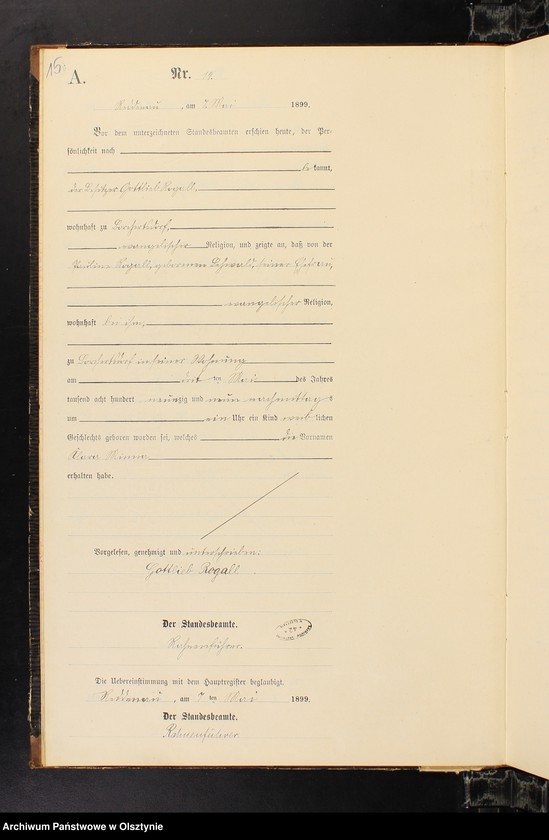 15
A.
Nr.
Reddenau, am 7. Mai 1899.
Vor dem unterzeichneten Standesbeamten erschien heute, der Per-
sönlichkeit nach
be kannt,
der Besitzer Gottlieb Rogall,
wohnhaft zu Borchertsdorf,
evangelischer Religion, und zeigte an, daß von der
Rogall, geborenen seiner Ehefrau,
evangelischer Religion,
wohnhaft bei ihm,
zu Borchertsdorf in seiner Wohnung
am ten Mai des Jahres
tausend acht hundert neunzig und neun nachmittags
um ein Uhr ein Kind weib lichen
Geschlechts geboren worden sei, welches die Vornamen
erhalten habe.
Vorgelesen, genehmigt und unterschrieben:
Gottlieb Rogall
Der Standesbeamte.
Rahnenführer.
Die Uebereinstimmung mit dem Hauptregister beglaubigt.
Reddenau, am 7 ten Mai 1899.
Der Standesbeamte.
Rahnenführer.
Archiwum Państwowe w Olsztynie